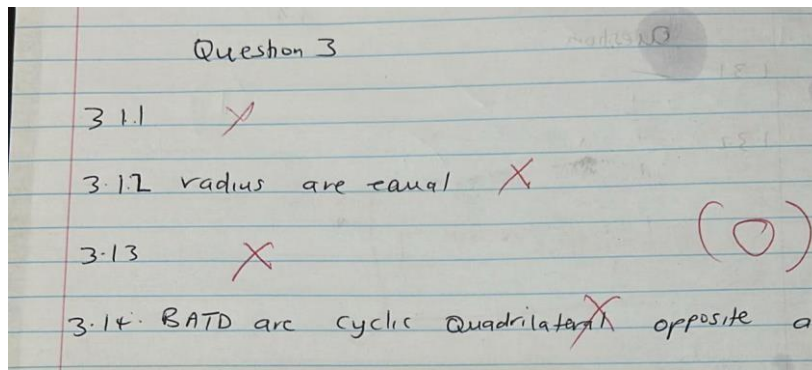 Question 3
3 1.1
3.1.2 radius are equal
3.13
(0)
3.14. BATD are cyclic Quadrilateral opposite a